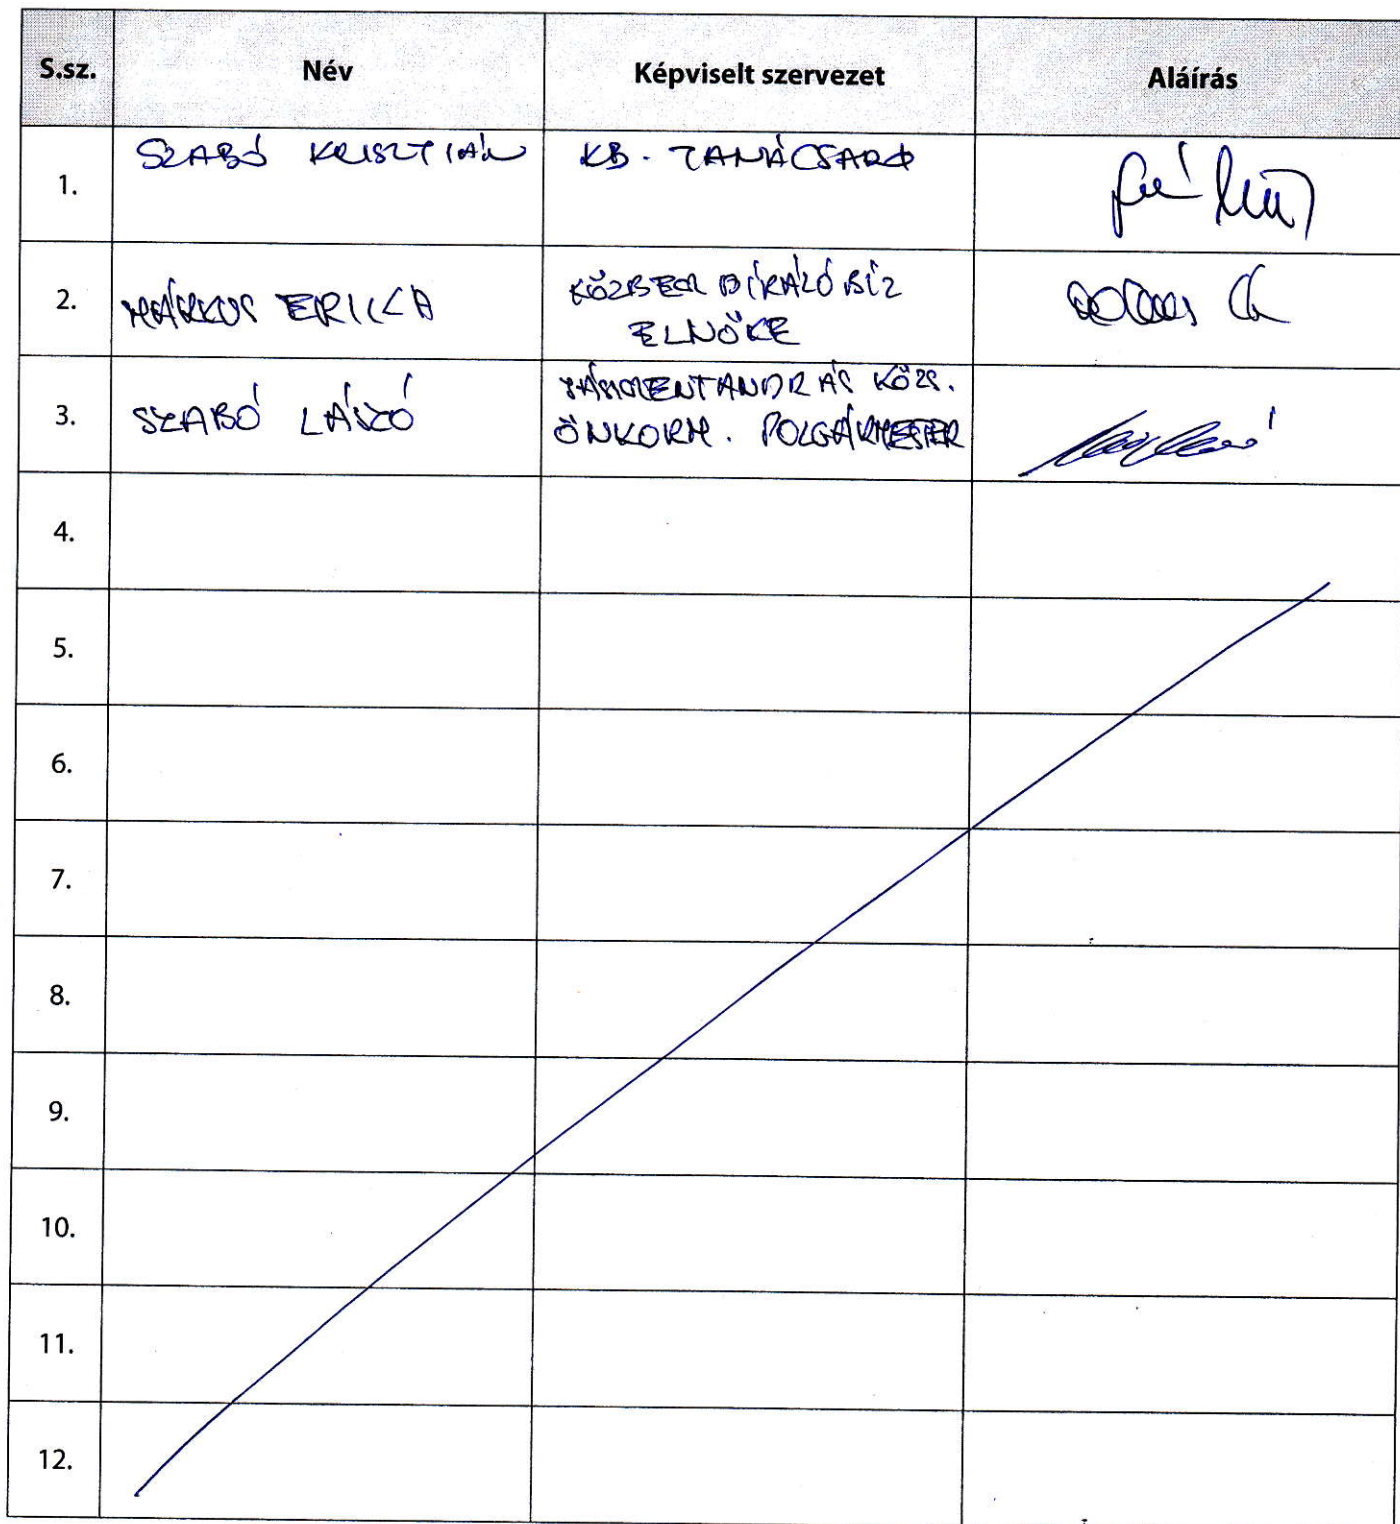 S.sz. Név Képviselt szervezet Aláírás
1. SZABÓ KRISZTIÁN KB. TANÁCSADÓ
2. MÁRKUS ERIKA KÖZBER BÍRÁLÓ BIZ
ELNÖKE
3. SZABÓ LÁSZLÓ JÁSZSZENTANDRÁS KÖZS.
ÖNKORM. POLGÁRMESTER
4.
5.
6.
7.
8.
9.
10.
11.
12.